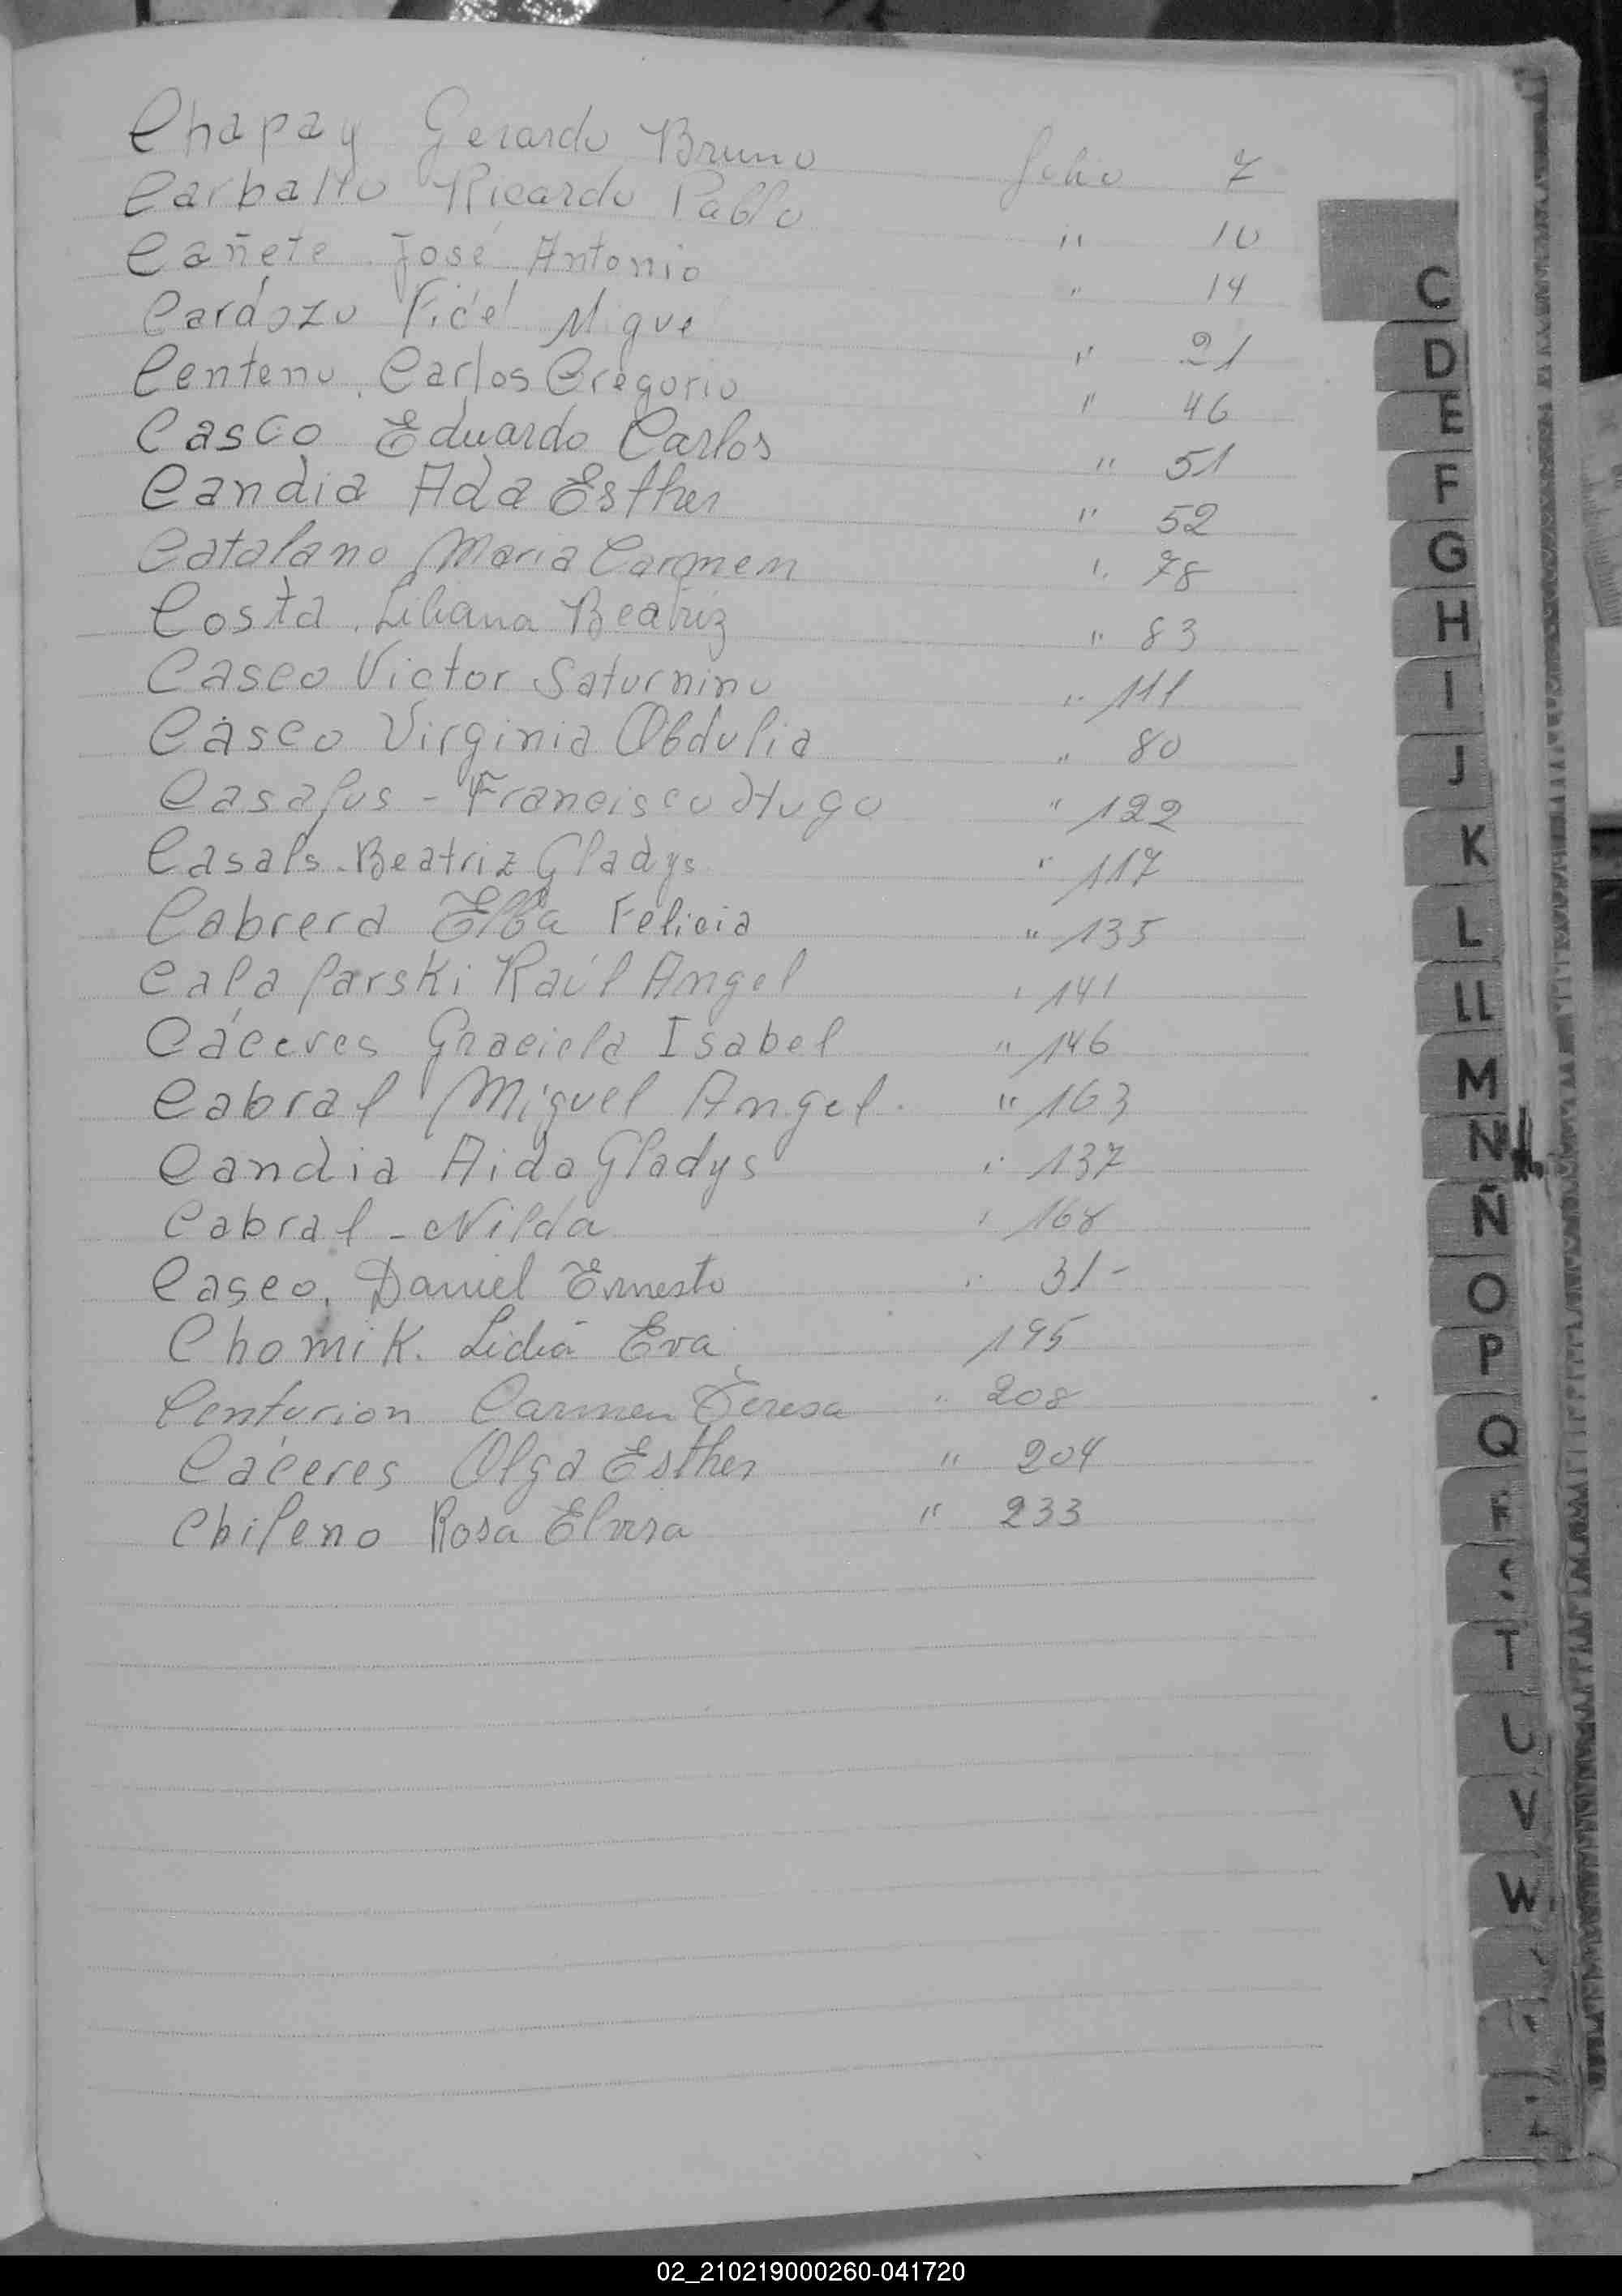 Chapay Gerardo Bruno folio 7
Carballo Ricardo Pablo " 10
Cañete José Antonio " 14
Cardozo Fidel Miguel " 21
Centeno, Carlos Gregorio " 46
Casco Eduardo Carlos " 51
Candia Ada Esther " 52
Catalano Maria Carmen " 78
Costa, Liliana Beatriz " 83
Casco Victor Saturnino " 111
Casco Virginia Obdulia " 80
Casafus - Francisco Hugo " 122
Casals - Beatriz Gladys " 117
Cabrera Elba Felicia " 135
Raúl Angel " 141
Cáceres Graciela Isabel " 146
Cabral Miguel Angel. " 163
Candia Aida Gladys " 137
Cabral - Nilda " 168
Casco, Daniel Ernesto " 31 -
Chomik. Lidia Eva 195
Centurion Carmen Teresa " 208
Cáceres Olga Esther " 204
Chileno Rosa Elvira " 233
C
D
E
F
G
H
I
J
K
L
LL
M
N
Ñ
O
P
Q
R
S
T
U
V
W
02_210219000260-041720